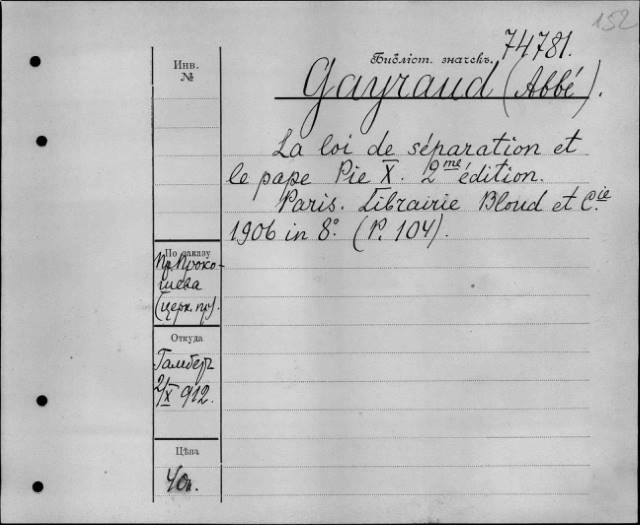 152
74781.
Библіот. значекъ.
Инв.
№
Gayraud (Abbé).
La loi de séparation et
le pape Pie X. 2me édition.
Paris. Librairie Bloud et Cie.
1906 in 8°. (P. 104).
По заказу
Пр. Проко-
шева
(церк. пр).
Откуда
Гамбер
2/X 912.
Цѣна
40к.